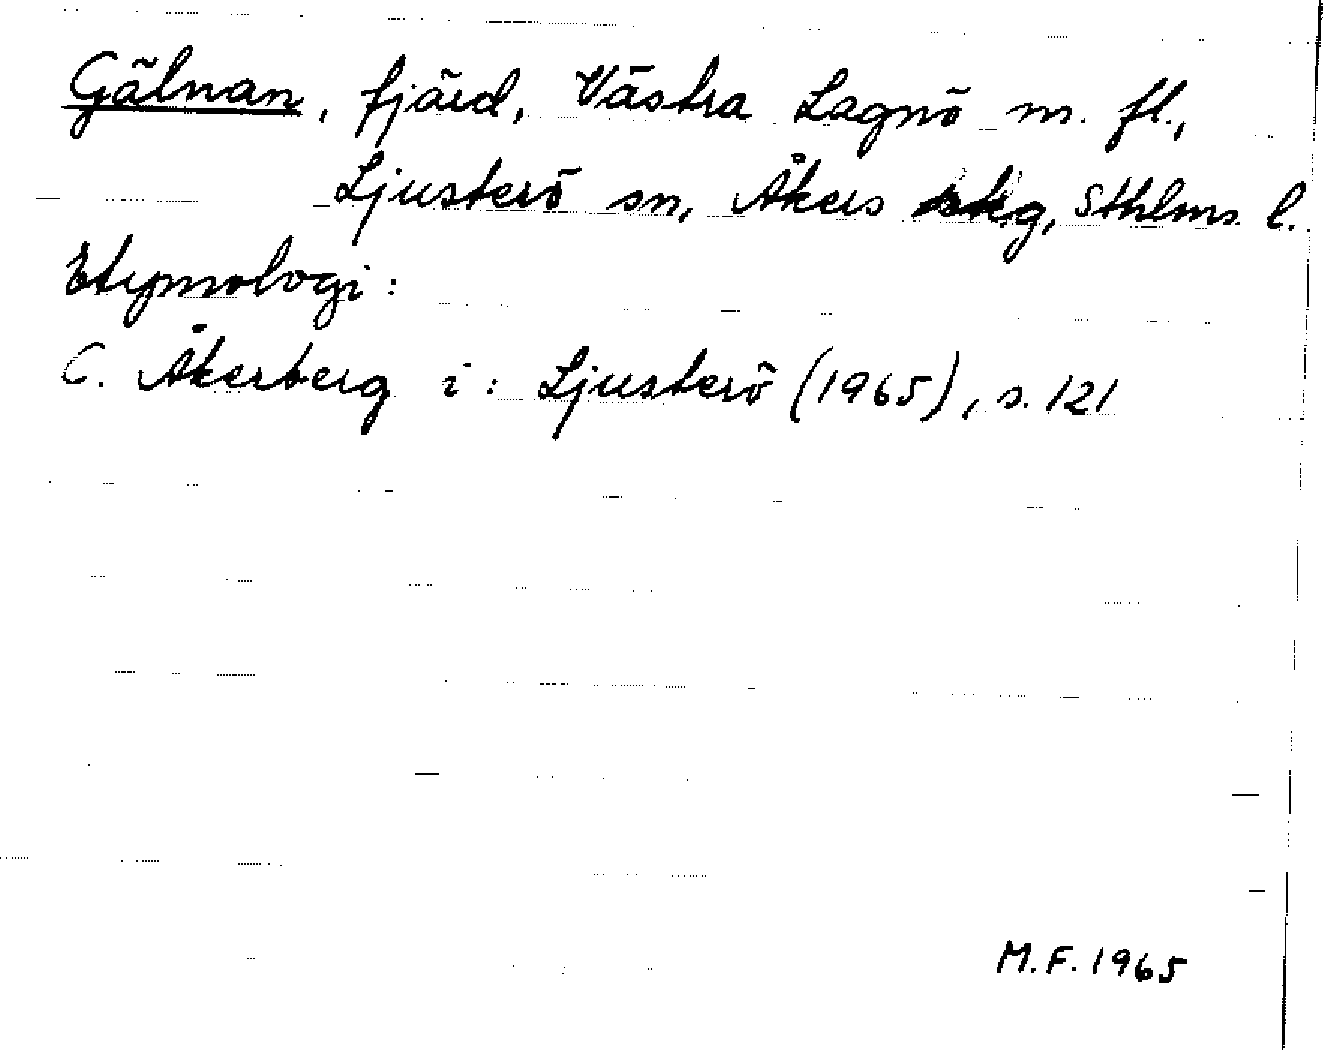 Gälnan, fjärd, Västra Lagnö m. fl.,
Ljusterö sn, Åkers skg, Sthlms l.
Etymologi:
C. Åkerberg i: Ljusterö (1965), s. 121
M.F. 1965